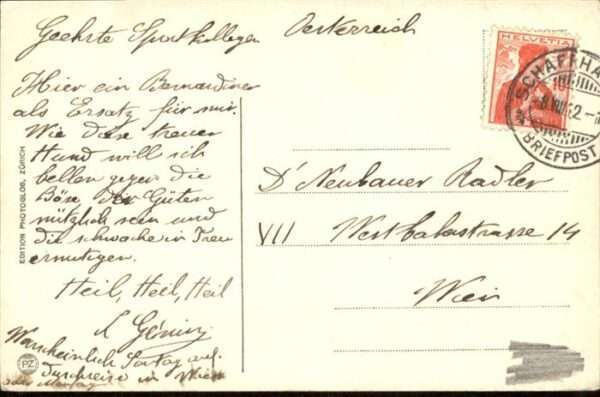 Geehrte Sportkollegen
Oesterreich
Hier ein Bernardiner
als Ersatz für mir.
Wie diese treuer
Hund will ich
bellen gegen die
Böse Der Guten
nützlich sein und
die schwache in Treu
ermutigen.
Heil, Heil, Heil
Warscheinlich auf
Durchreise in Wien
oder Montag
EDITION PHOTOGLOB, ZÜRICH
PZ
HELVETIA
SCHAFFHA
BRIEFPOST
Dr Neubauer Radler
VII Westbahnstrasse 14
Wien